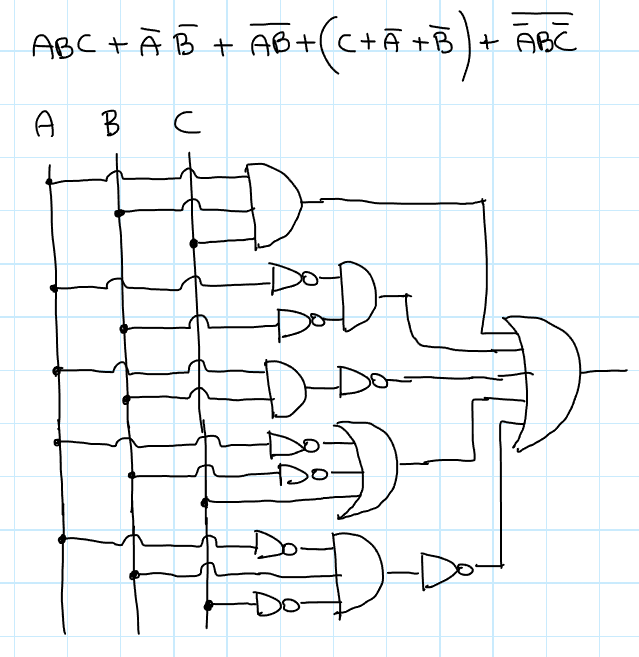 ABC + A̅ B̅ + A̅B̅ + (C + A̅ + B̅) + A̅̅B̅C̅̅
A B C